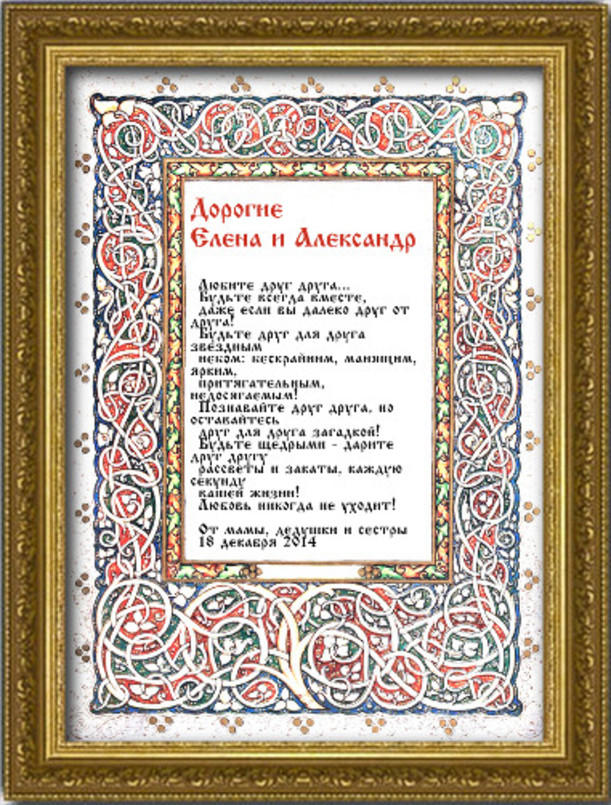 Дорогие
Елена и Александр
Любите друг друга...
Будьте всегда вместе,
даже если вы далеко друг от
друга!
Будьте друг для друга
звёздным
небом: бескрайним, манящим,
ярким,
притягательным,
недосягаемым!
Познавайте друг друга, но
оставайтесь
друг для друга загадкой!
Будьте щедрыми - дарите
друг другу
рассветы и закаты, каждую
секунду
вашей жизни!
Любовь никогда не уходит!
От мамы, дедушки и сестры
18 декабря 2014